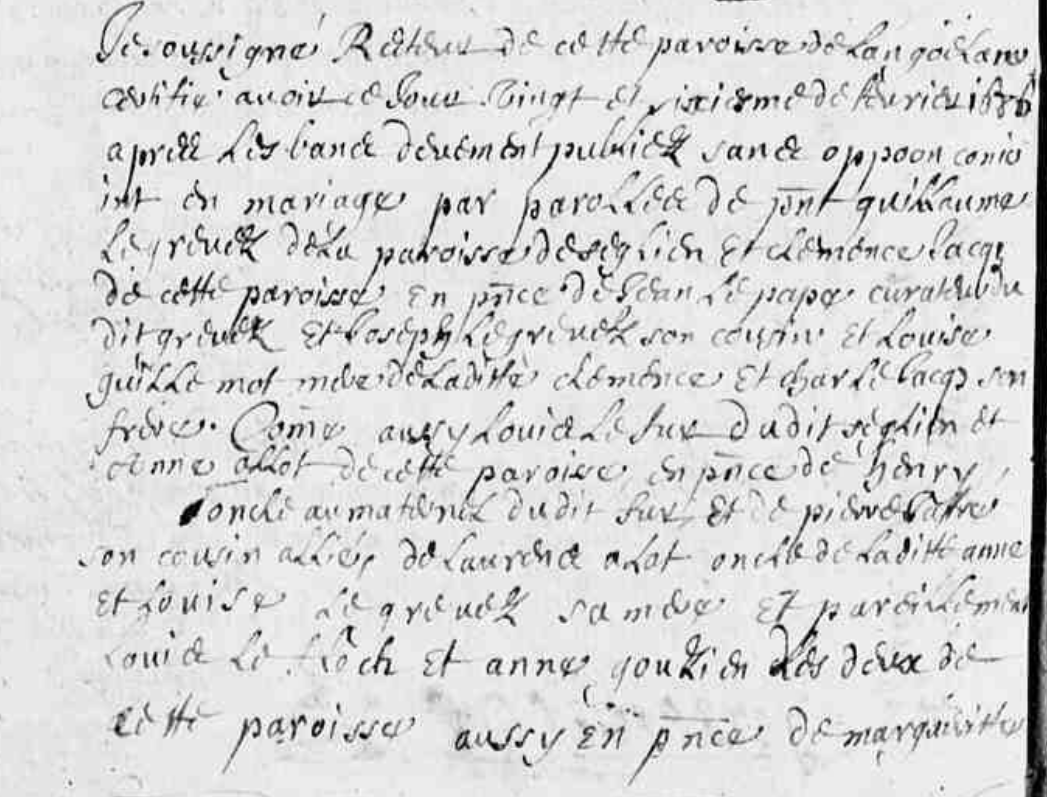 Je soussigné Recteur de cette paroisse de Langoelan
certifie avoir ce Jour Vingt et sixiesme de febvrier 1686
apres les bans deuement publiez sans oppoon conio
int en mariage par parolles de pnt guillaume
Le greuez de La paroisse de seglien et clemence Jacq
de cette paroisse en pnce de Jean Le pape curateur du
dit greuez et Joseph Le greuez son cousin et Louise
guillemot mere de Laditte clemence et charle Jacq son
frere. Comē aussy Louis Le fur dudit seglien et
Anne allot de cette paroise en pnce de henry
oncle au maternel dudit fur et de pierre
son cousin allié, de Laurens alot oncle de Laditte anne
et Louise Le greuez sa mere et pareillement
Louis Le floch et anne gouzien Les deux de
cette paroisse aussy en pnce de marguerite